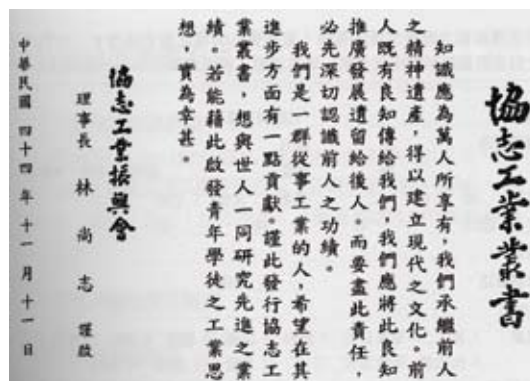 協志工業叢書
知識應為萬人所享有，我們承繼前人
之精神遺產，得以建立現代之文化。前
人既有良知傳給我們，我們應將此良知
推廣發展遺留給後人。而要盡此責任，
必先深切認識前人之功績。
我們是一群從事工業的人，希望在其
進步方面有一點貢獻。謹此發行協志工
業叢書，想與世人一同研究先進之業
績。若能藉此啟發青年學徒之工業思
想，實為幸甚。
協志工業振興會
理事長 林尚志 謹啟
中華民國四十四年十一月十一日